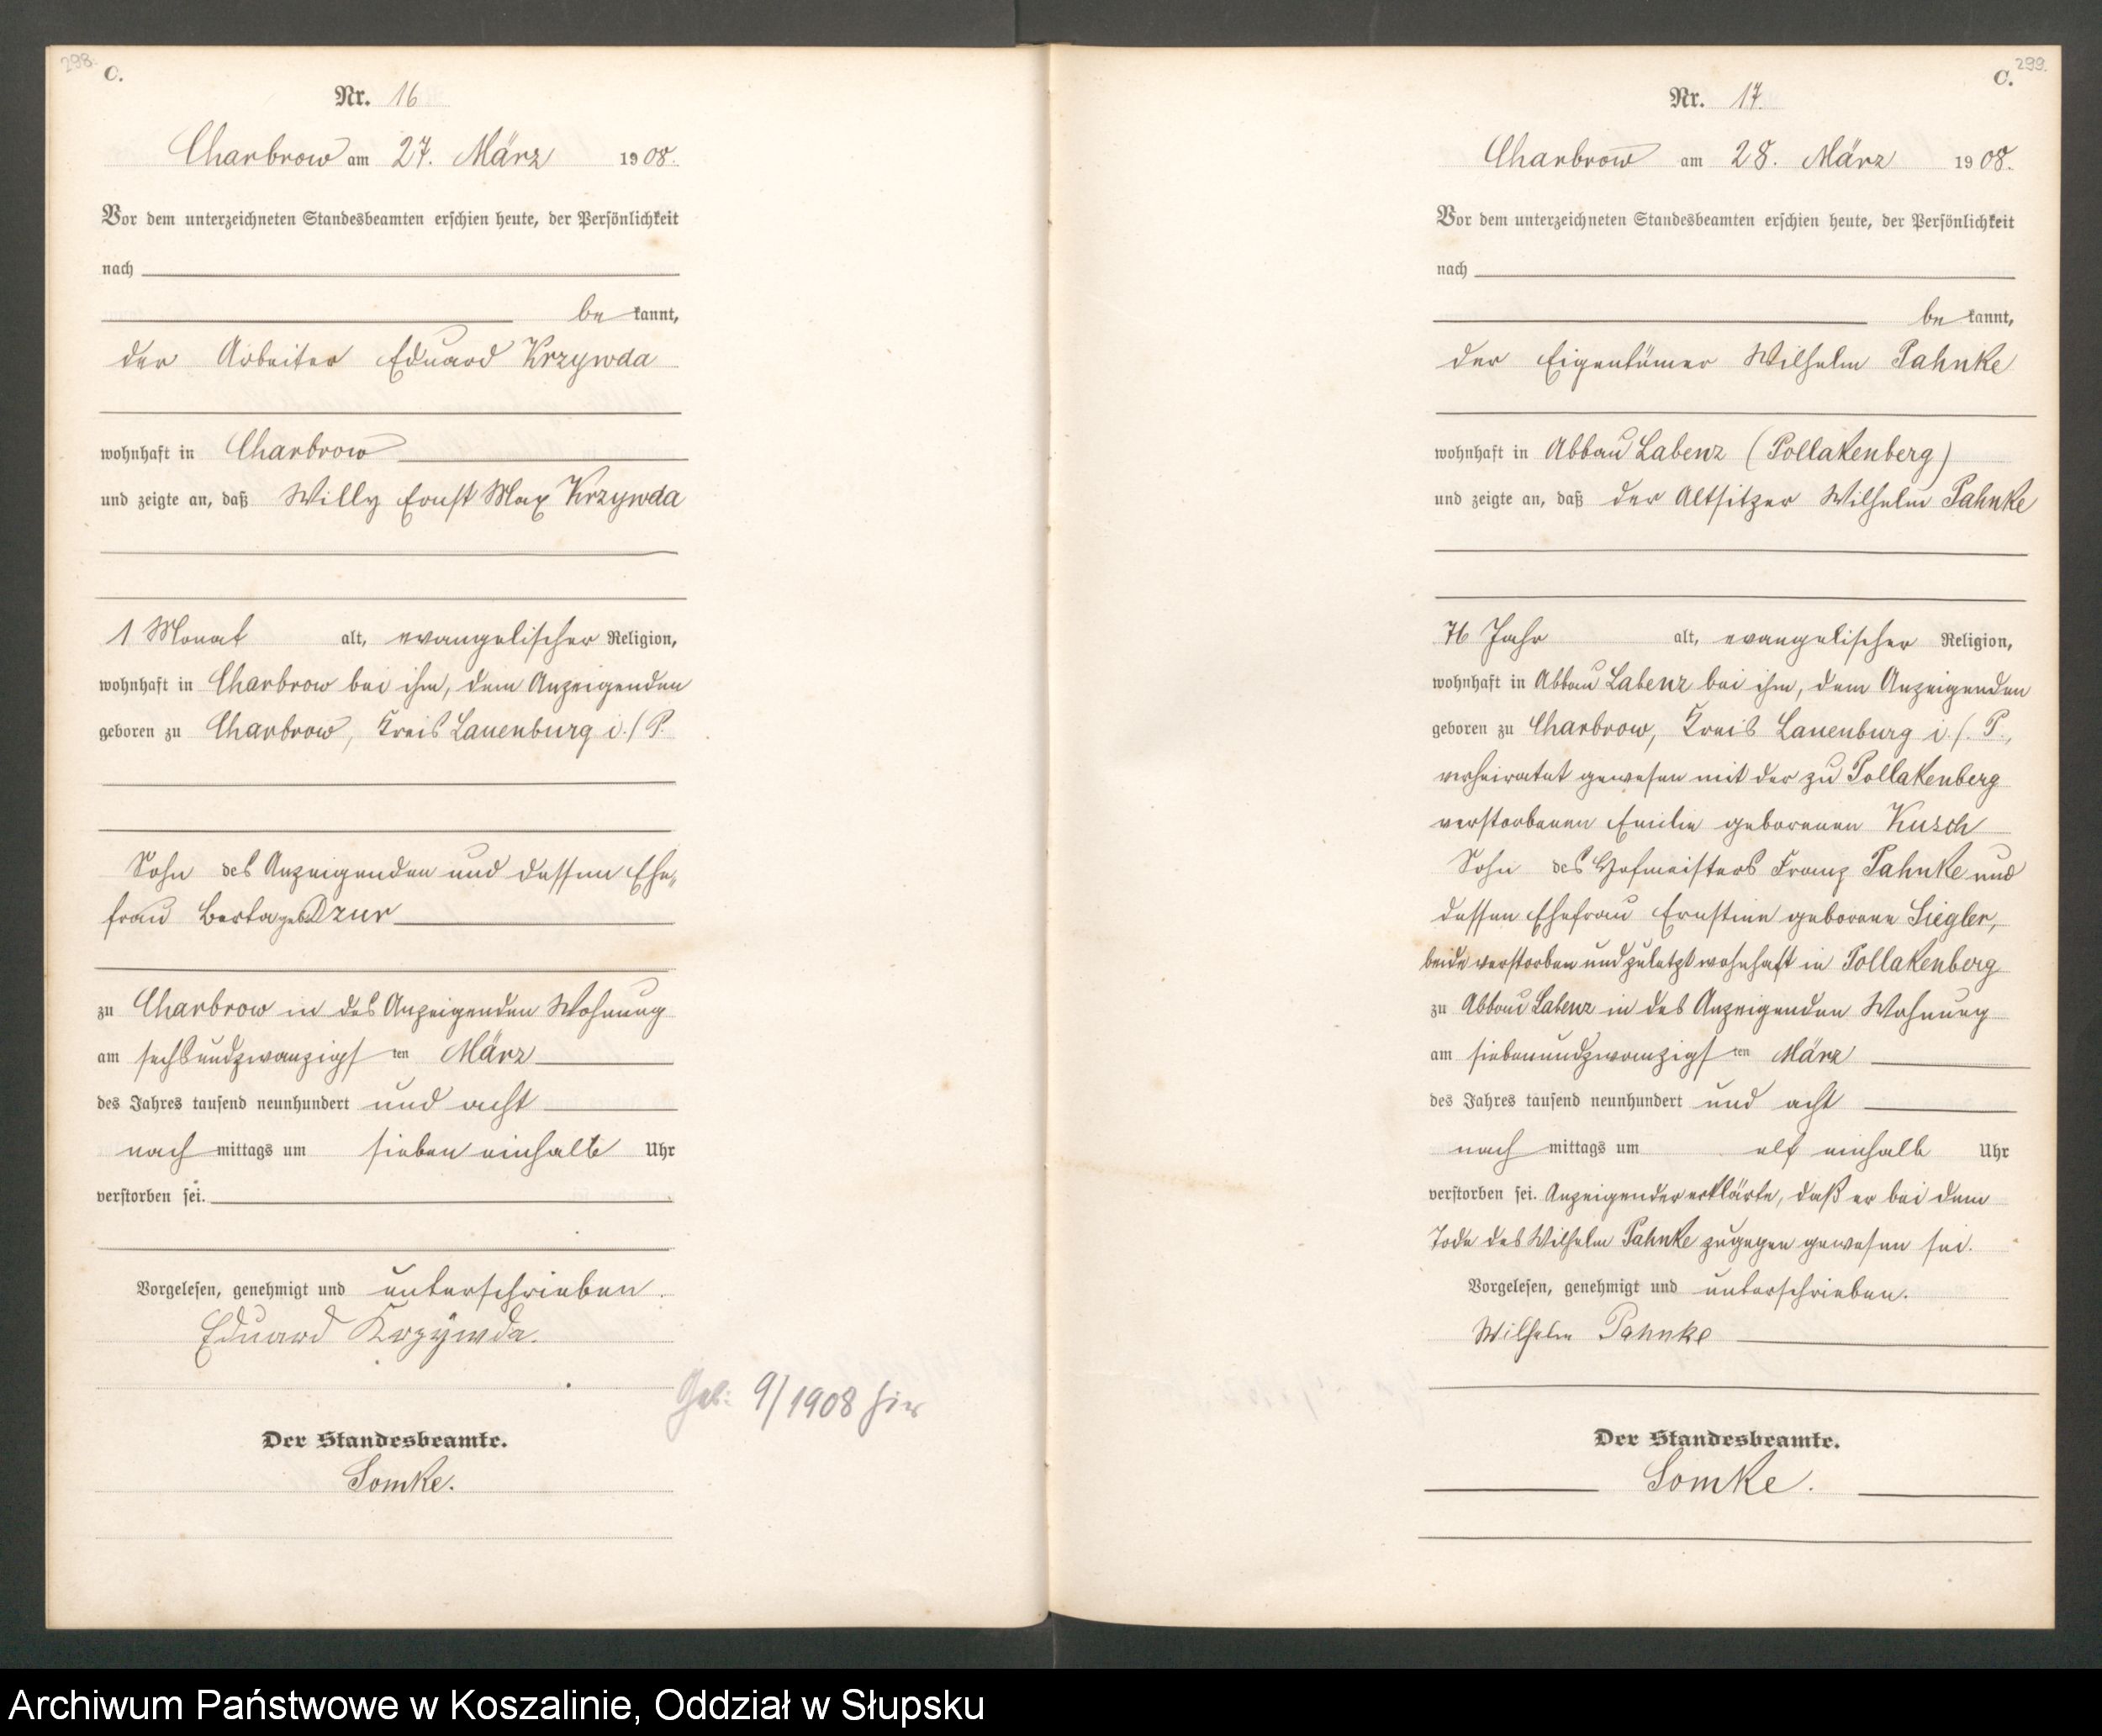 298.
C.
Nr. 16
Charbrow am 27. März 1908.
Vor dem unterzeichneten Standesbeamten erschien heute, der Persönlichkeit
nach
be kannt,
der Arbeiter Eduard Krzywda
wohnhaft in Charbrow
und zeigte an, daß Willy Ernst Max Krzywda
1 Monat alt, evangelischer Religion,
wohnhaft in Charbrow bei ihm, dem Anzeigenden
geboren zu Charbrow, Kreis Lauenburg i./P.
Sohn des Anzeigenden und dessen Ehe„
frau Berta geb. Dzur
zu Charbrow in des Anzeigenden Wohnung
am sechsundzwanzigsten März
des Jahres tausend neunhundert und acht
nach mittags um sieben einhalb Uhr
verstorben sei.
Vorgelesen, genehmigt und unterschrieben.
Eduard Krzÿwda.
Geb: 9/1908 hier
Der Standesbeamte.
Somke.
299.
C.
Nr. 17.
Charbrow am 28. März 1908.
Vor dem unterzeichneten Standesbeamten erschien heute, der Persönlichkeit
nach
be kannt,
der Eigentümer Wilhelm Pahnke
wohnhaft in Abbau Labenz (Pollakenberg)
und zeigte an, daß der Altsitzer Wilhelm Pahnke
76 Jahr alt, evangelischer Religion,
wohnhaft in Abbau Labenz bei ihm, dem Anzeigenden
geboren zu Charbrow, Kreis Lauenburg i./P.,
verheiratet gewesen mit der zu Pollakenberg
verstorbenen Emilie geborenen Kusch
Sohn des Hofmeisters Franz Pahnke und
dessen Ehefrau Ernstine geborene Siegler,
beide verstorben und zuletzt wohnhaft in Pollakenberg
zu Abbau Labenz in des Anzeigenden Wohnung
am siebenundzwanzigsten März
des Jahres tausend neunhundert und acht
nach mittags um elf einhalb Uhr
verstorben sei. Anzeigender erklärte, daß er bei dem
Tode des Wilhelm Pahnke zugegen gewesen sei.
Vorgelesen, genehmigt und unterschrieben.
Wilhelm Pahnke
Der Standesbeamte.
Somke.
Archiwum Państwowe w Koszalinie, Oddział w Słupsku